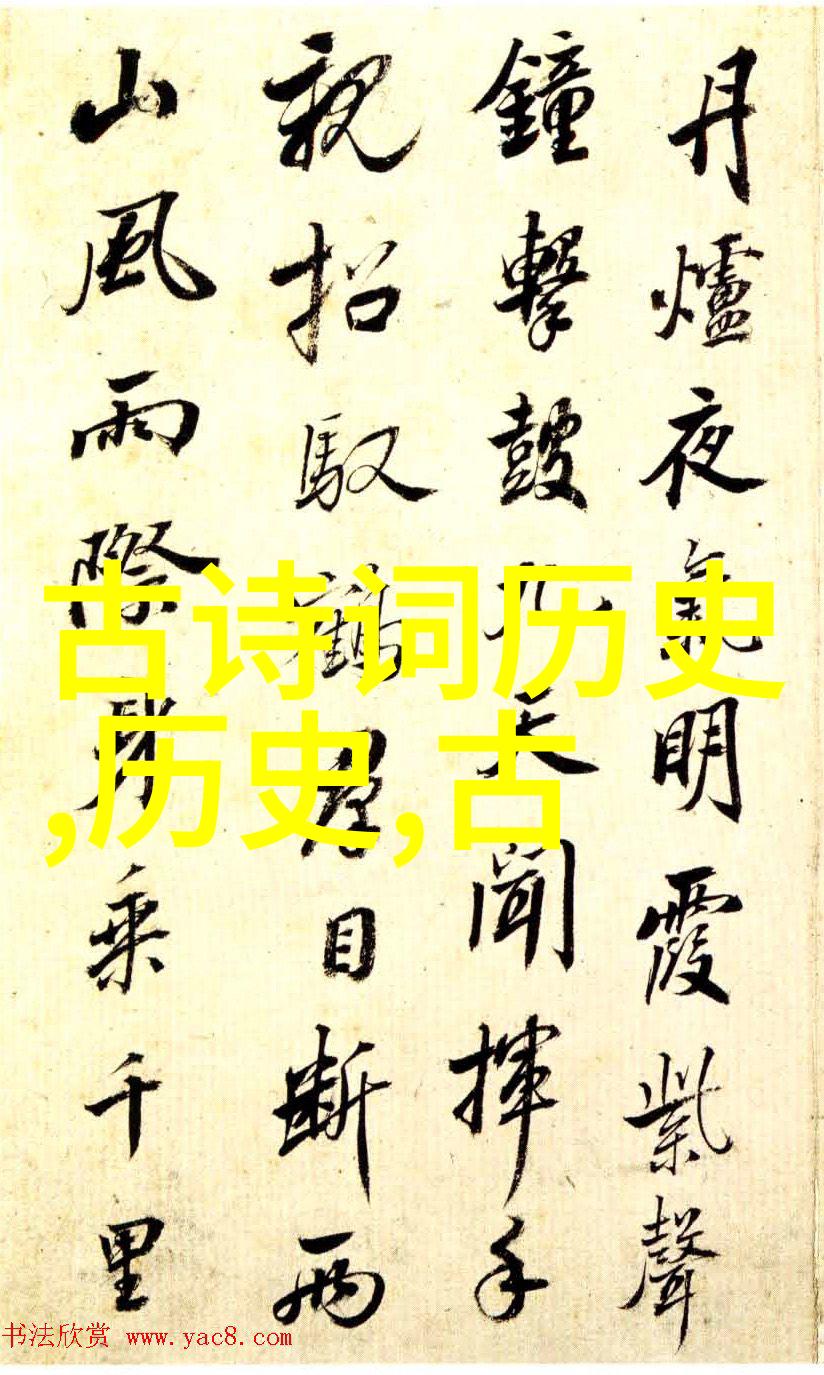 丹爐夜氣明霞紫聲
鐘擊鼓九天聞揮手
親招馭鶴君目斷兩
山風雨際身乘千里
古诗词历史
,历史,古
书法欣赏 www.yac8.com